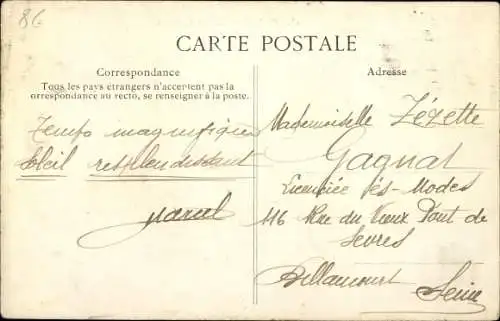 86
CARTE POSTALE
Correspondance
Tous les pays étrangers n'acceptent pas la
correspondance au recto, se renseigner à la poste.
Temps magnifique
Soleil resplendissant
Marcel
Adresse
Mademoiselle Zézette
Gagnat
Licenciée ès-Modes
116 Rue du Vieux Pont de
Sevres
Billancourt
Seine